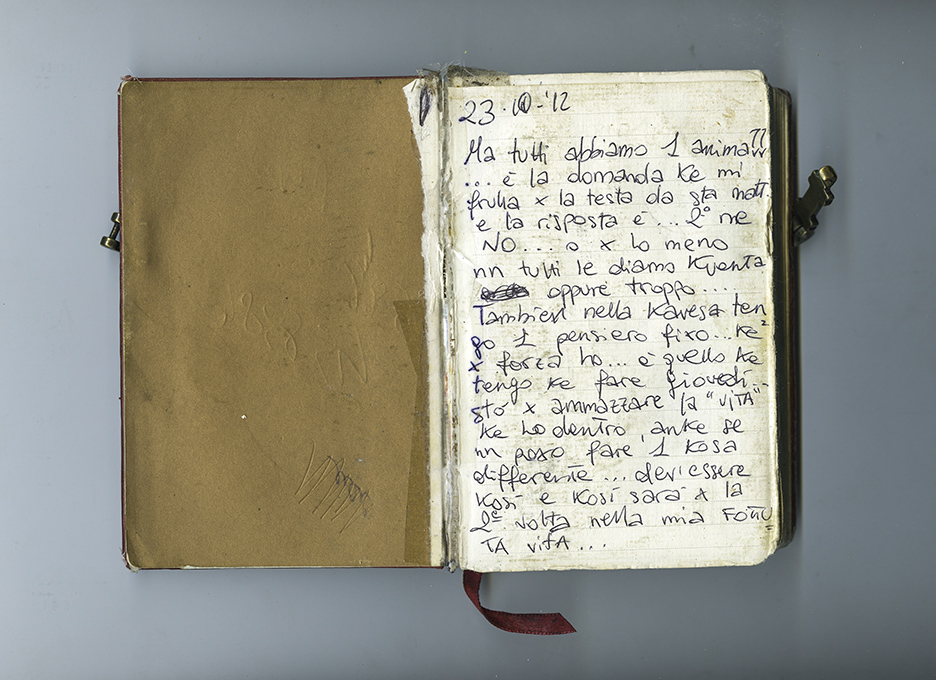 23.10-'12
Ma tutti abbiamo 1 anima??
... è la domanda ke mi
frulla x la testa da sta matt.
e la risposta è ... 2° me
NO.... o x lo meno
nn tutti le diamo Kventa
oppure troppo....
Tambien nella Kavesa ten
go 1 pensiero fixo... ke
x forza ho... è quello ke
tengo ke fare giovedì
sto x ammazzare la "VITA"
ke ho dentro, anke se
nn poxo fare 1 kosa
differente... dev'essere
kosì e kosì sarà x la
2ª volta nella mia FOTTU=
TA vita...